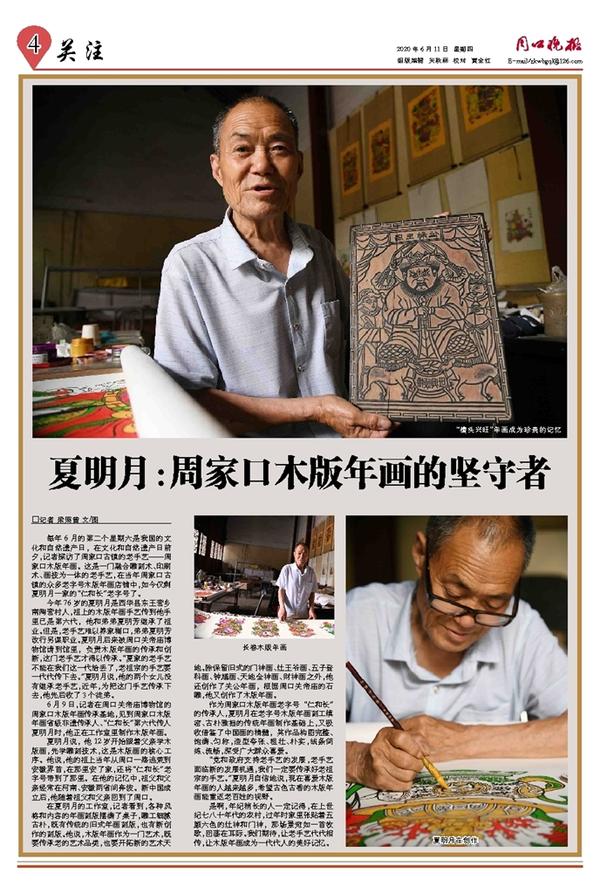 4 关注
2020年6月11日 星期四
周口晚报
E-mail/zkwbgqk@126.com
“槽头兴旺”年画成为珍贵的记忆
夏明月:周家口木版年画的坚守者
□记者 梁照曾 文/图
每年6月的第二个星期六是我国的文
化和自然遗产日,在文化和自然遗产日前
夕,记者探访了周家口古镇的老手艺——周
家口木版年画。这是一门融合雕刻术、印刷
术、画技为一体的老手艺,在当年周家口古
镇的众多老字号木版年画店铺中,如今仅剩
夏明月一家的“仁和长”老字号了。
今年76岁的夏明月是西华县东王营乡
南陶营村人,祖上的木版年画手艺传到他手
里已是第六代,他和弟弟夏明芳继承了祖
业。但是,老手艺难以养家糊口,弟弟夏明芳
改行另谋职业。夏明月后来被周口关帝庙博
物馆请到馆里,负责木版年画的传承和创
新,这门老手艺才得以传承。“夏家的老手艺
不能在我们这一代给丢了,老祖宗的手艺要
一代代传下去。”夏明月说,他的两个女儿没
有继承老手艺,近年,为把这门手艺传承下
去,他先后收了3个徒弟。
6月9日,记者在周口关帝庙博物馆的
周家口木版年画传承基地,见到周家口木版
年画省级非遗传承人、“仁和长”第六代传人
夏明月时,他正在工作室里制作木版年画。
夏明月说,他12岁开始跟着父亲学木
版画,先学雕刻技术,这是木版画的核心工
序。他说,他的祖上当年从周口一路逃荒到
安徽界首,在那里安了家,还将“仁和长”老
字号带到了那里。在他的记忆中,祖父和父
亲经常在河南、安徽两省间奔波。新中国成
立后,他随着祖父和父亲回到了周口。
在夏明月的工作室,记者看到,各种风
格和内容的年画刻版摆满了桌子,雕工细腻
古朴,既有传统的旧式年画刻版,也有新创
作的刻版。他说,木版年画作为一门艺术,既
要传承老的艺术品类,也要开拓新的艺术天
长卷木版年画
地。除保留旧式的门神画、灶王爷画、五子登
科画、钟馗画、天地全神画、财神画之外,他
还创作了关公年画,根据周口关帝庙的石
雕,他又创作了木版年画。
作为周家口木版年画老字号“仁和长”
的传承人,夏明月在老字号木版年画刻工精
密、古朴雅拙的传统年画制作基础上,又吸
收借鉴了中国画的精髓,其作品构图完整、
饱满、匀称,造型夸张、粗壮、朴实,线条简
练、流畅,深受广大群众喜爱。
“党和政府支持老手艺的发展,老手艺
面临新的发展机遇,我们一定要传承好老祖
宗的手艺。”夏明月自信地说,现在喜爱木版
年画的人越来越多,希望古色古香的木版年
画能重返老百姓的视野。
是啊,年纪稍长的人一定记得,在上世
纪七八十年代的农村,过年时家里张贴着五
颜六色的灶神和门神,那场景宛如一首牧
歌,回荡在耳际。我们期待,让老手艺代代相
传,让木版年画成为一代代人的美好记忆。
夏明月在创作